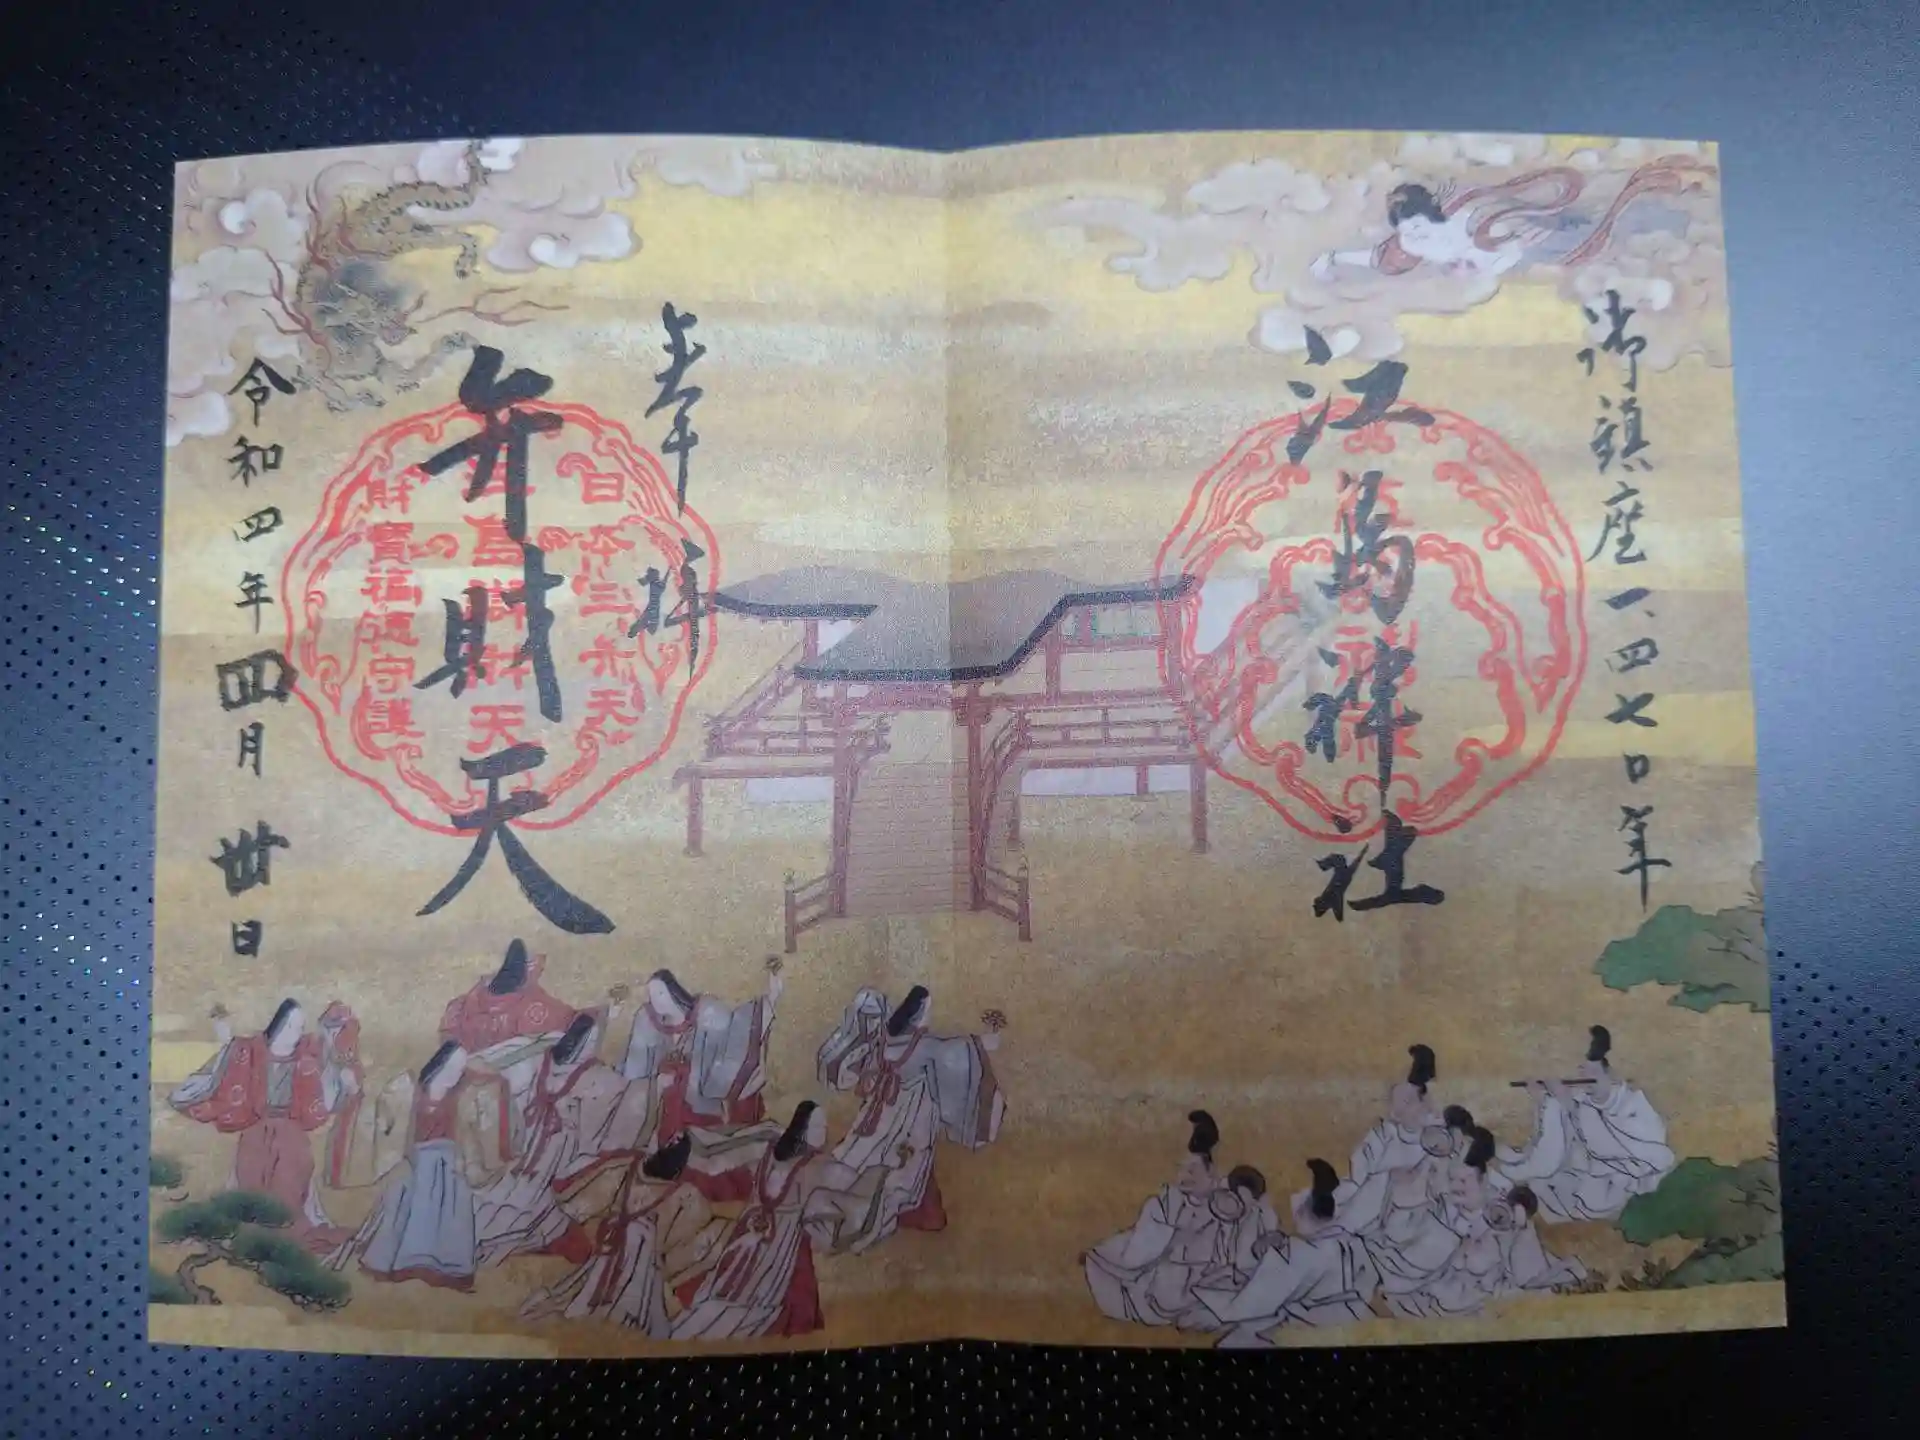 御鎮座一、四七〇年
江島神社
奉拝
日本三弁天
江島辯財天
財寶福徳守護
弁財天
令和四年四月卅日